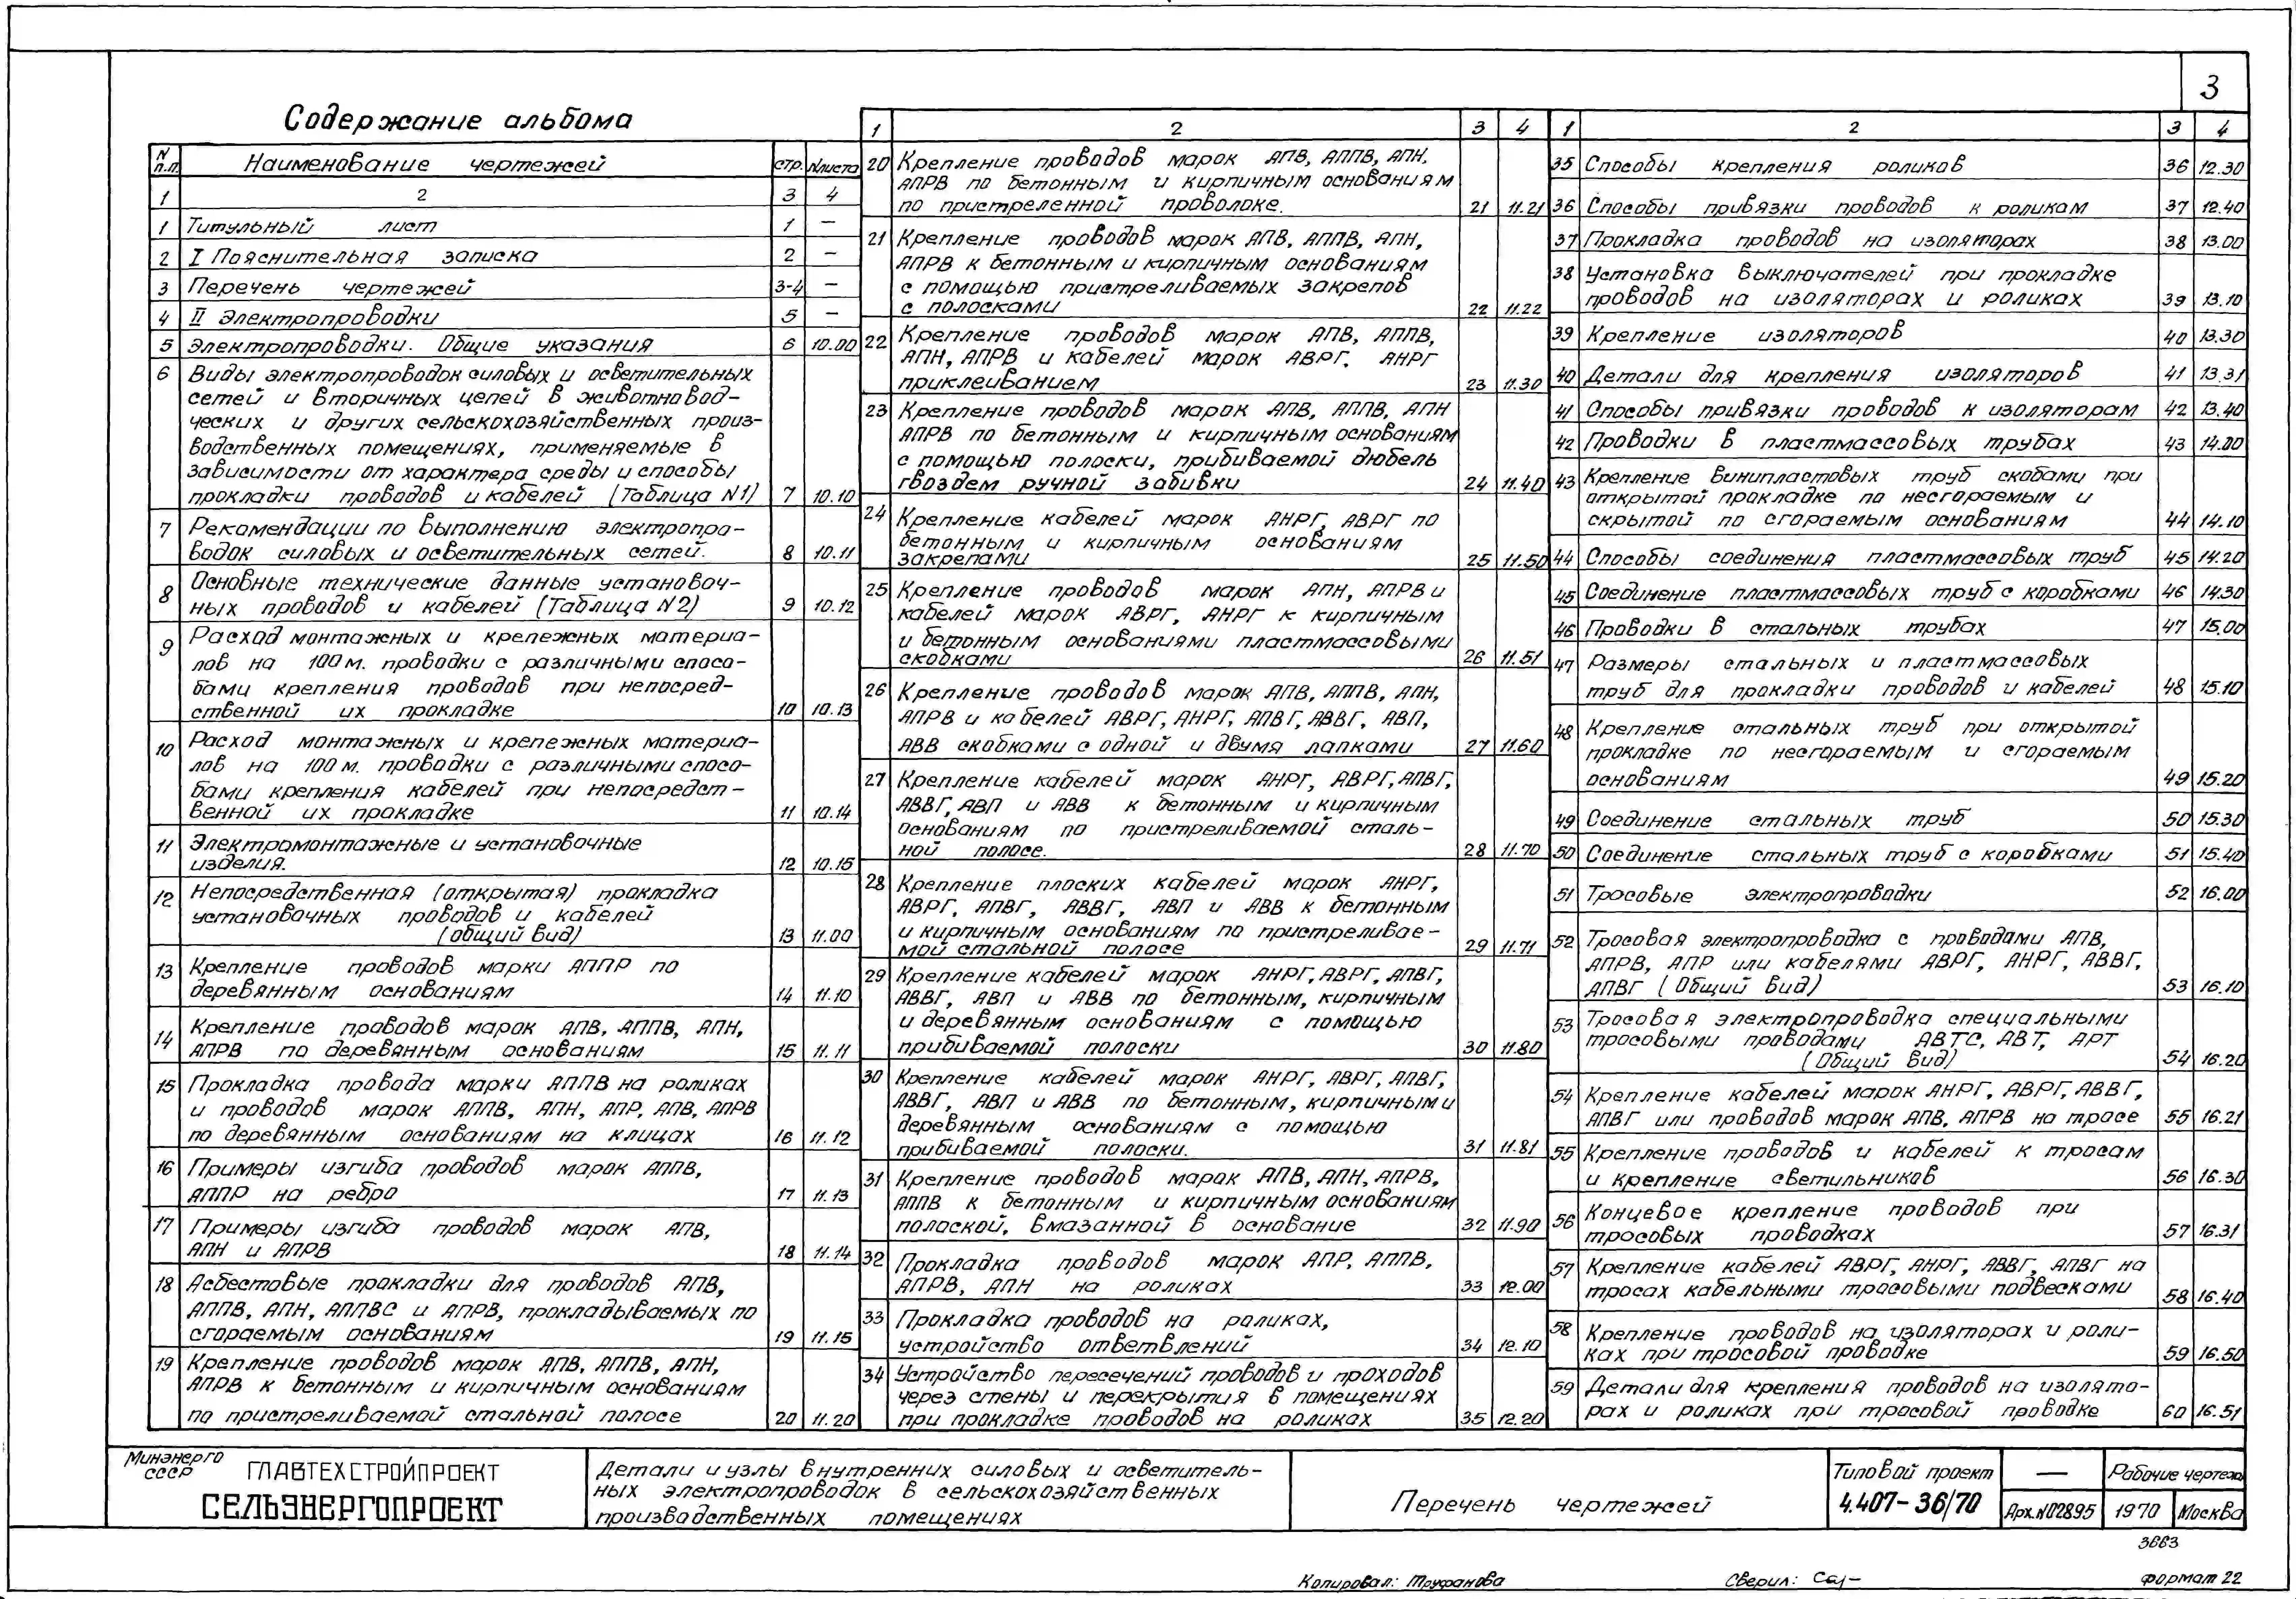 3
Содержание альбома
N п.п. Наименование чертежей стр. N листа
1 2 3 4
1 Титульный лист 1 —
2 I Пояснительная записка 2 —
3 Перечень чертежей 3-4 —
4 II Электропроводки 5 —
5 Электропроводки. Общие указания 6 10.00
6 Виды электропроводок силовых и осветительных
сетей и вторичных цепей в животновод-
ческих и других сельскохозяйственных произ-
водственных помещениях, применяемые в
зависимости от характера среды и способы
прокладки проводов и кабелей (Таблица N1) 7 10.10
7 Рекомендации по выполнению электропро-
водок силовых и осветительных сетей. 8 10.11
8 Основные технические данные установоч-
ных проводов и кабелей (Таблица N2) 9 10.12
9 Расход монтажных и крепежных материа-
лов на 100 м. проводки с различными спосо-
бами крепления проводов при непосред-
ственной их прокладке 10 10.13
10 Расход монтажных и крепежных материа-
лов на 100 м. проводки с различными спосо-
бами крепления кабелей при непосредст-
венной их прокладке 11 10.14
11 Электромонтажные и установочные
изделия. 12 10.15
12 Непосредственная (открытая) прокладка
установочных проводов и кабелей
(общий вид) 13 11.00
13 Крепление проводов марки АППР по
деревянным основаниям 14 11.10
14 Крепление проводов марок АПВ, АППВ, АПН,
АПРВ по деревянным основаниям 15 11.11
15 Прокладка провода марки АППВ на роликах
и проводов марок АППВ, АПН, АПР, АПВ, АПРВ
по деревянным основаниям на клицах 16 11.12
16 Примеры изгиба проводов марок АППВ,
АППР на ребро 17 11.13
17 Примеры изгиба проводов марок АПВ,
АПН и АПРВ 18 11.14
18 Асбестовые прокладки для проводов АПВ,
АППВ, АПН, АППВС и АПРВ, прокладываемых по
сгораемым основаниям 19 11.15
19 Крепление проводов марок АПВ, АППВ, АПН,
АПРВ к бетонным и кирпичным основаниям
по пристреливаемой стальной полосе 20 11.20
1 2 3 4
20 Крепление проводов марок АПВ, АППВ, АПН,
АПРВ по бетонным и кирпичным основаниям
по пристреленной проволоке. 21 11.21
21 Крепление проводов марок АПВ, АППВ, АПН,
АПРВ к бетонным и кирпичным основаниям
с помощью пристреливаемых закрепов
с полосками 22 11.22
22 Крепление проводов марок АПВ, АППВ,
АПН, АПРВ и кабелей марок АВРГ, АНРГ
приклеиванием 23 11.30
23 Крепление проводов марок АПВ, АППВ, АПН
АПРВ по бетонным и кирпичным основаниям
с помощью полоски, прибиваемой дюбель
гвоздем ручной забивки 24 11.40
24 Крепление кабелей марок АНРГ, АВРГ по
бетонным и кирпичным основаниям
закрепами 25 11.50
25 Крепление проводов марок АПН, АПРВ и
кабелей марок АВРГ, АНРГ к кирпичным
и бетонным основаниями пластмассовыми
скобками 26 11.51
26 Крепление проводов марок АПВ, АППВ, АПН,
АПРВ и кабелей АВРГ, АНРГ, АПВГ, АВВГ, АВП,
АВВ скобками с одной и двумя лапками 27 11.60
27 Крепление кабелей марок АНРГ, АВРГ, АПВГ,
АВВГ, АВП и АВВ к бетонным и кирпичным
основаниям по пристреливаемой сталь-
ной полосе. 28 11.70
28 Крепление плоских кабелей марок АНРГ,
АВРГ, АПВГ, АВВГ, АВП и АВВ к бетонным
и кирпичным основаниям по пристреливае-
мой стальной полосе 29 11.71
29 Крепление кабелей марок АНРГ, АВРГ, АПВГ,
АВВГ, АВП и АВВ по бетонным, кирпичным
и деревянным основаниям с помощью
прибиваемой полоски 30 11.80
30 Крепление кабелей марок АНРГ, АВРГ, АПВГ,
АВВГ, АВП и АВВ по бетонным, кирпичным и
деревянным основаниям с помощью
прибиваемой полоски. 31 11.81
31 Крепление проводов марок АПВ, АПН, АПРВ,
АППВ к бетонным и кирпичным основаниям
полоской, вмазанной в основание 32 11.90
32 Прокладка проводов марок АПР, АППВ,
АПРВ, АПН на роликах 33 12.00
33 Прокладка проводов на роликах,
устройство ответвлений 34 12.10
34 Устройство пересечений проводов и проходов
через стены и перекрытия в помещениях
при прокладке проводов на роликах 35 12.20
1 2 3 4
35 Способы крепления роликов 36 12.30
36 Способы привязки проводов к роликам 37 12.40
37 Прокладка проводов на изоляторах 38 13.00
38 Установка выключателей при прокладке
проводов на изоляторах и роликах 39 13.10
39 Крепление изоляторов 40 13.30
40 Детали для крепления изоляторов 41 13.31
41 Способы привязки проводов к изоляторам 42 13.40
42 Проводки в пластмассовых трубах 43 14.00
43 Крепление винипластовых труб скобами при
открытой прокладке по несгораемым и
скрытой по сгораемым основаниям 44 14.10
44 Способы соединения пластмассовых труб 45 14.20
45 Соединение пластмассовых труб с коробками 46 14.30
46 Проводки в стальных трубах 47 15.00
47 Размеры стальных и пластмассовых
труб для прокладки проводов и кабелей 48 15.10
48 Крепление стальных труб при открытой
прокладке по несгораемым и сгораемым
основаниям 49 15.20
49 Соединение стальных труб 50 15.30
50 Соединение стальных труб с коробками 51 15.40
51 Тросовые электропроводки 52 16.00
52 Тросовая электропроводка с проводами АПВ,
АПРВ, АПР или кабелями АВРГ, АНРГ, АВВГ,
АПВГ (Общий вид) 53 16.10
53 Тросовая электропроводка специальными
тросовыми проводами АВТС, АВТ, АРТ
(Общий вид) 54 16.20
54 Крепление кабелей марок АНРГ, АВРГ, АВВГ,
АПВГ или проводов марок АПВ, АПРВ на тросе 55 16.21
55 Крепление проводов и кабелей к тросам
и крепление светильников 56 16.30
56 Концевое крепление проводов при
тросовых проводках 57 16.31
57 Крепление кабелей АВРГ, АНРГ, АВВГ, АПВГ на
тросах кабельными тросовыми подвесками 58 16.40
58 Крепление проводов на изоляторах и роли-
ках при тросовой проводке 59 16.50
59 Детали для крепления проводов на изолято-
рах и роликах при тросовой проводке 60 16.51
Минэнерго
СССР
ГЛАВТЕХСТРОЙПРОЕКТ
СЕЛЬЭНЕРГОПРОЕКТ
Детали и узлы внутренних силовых и осветитель-
ных электропроводок в сельскохозяйственных
производственных помещениях
Перечень чертежей
Типовой проект
4.407-36/70
— Рабочие чертежи
Арх.N02895 1970 Москва
3883
Копировал: Труфанова Сверил: формат 22